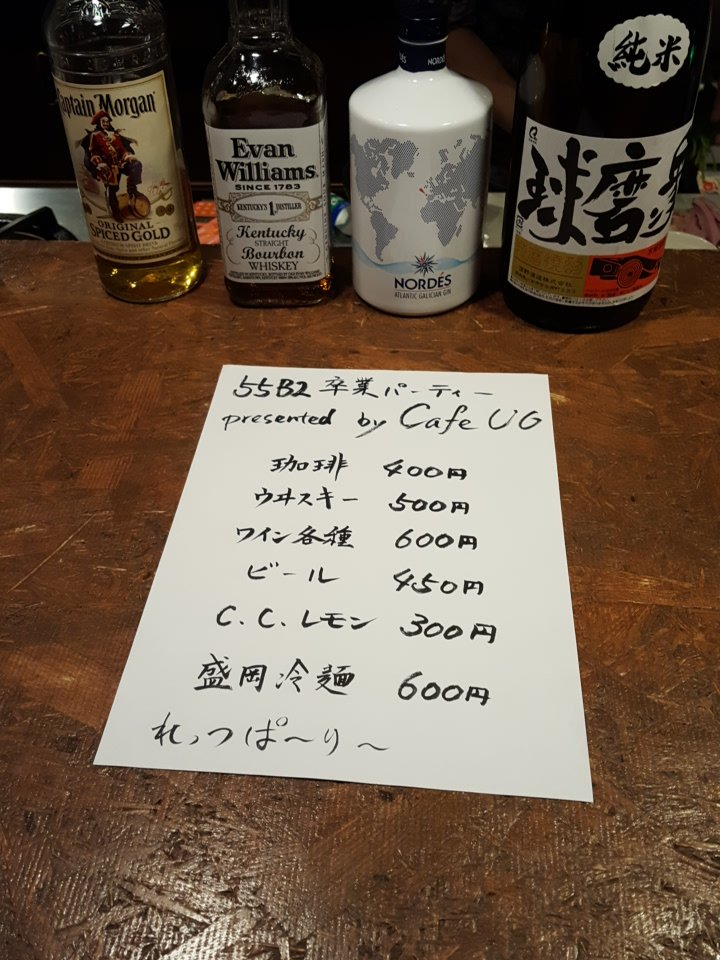 Captain Morgan
ORIGINAL
SPICED GOLD
Evan
Williams
SINCE 1783
KENTUCKY'S 1ST DISTILLER
Kentucky
STRAIGHT
Bourbon
WHISKEY
NORDÉS
NORDÉS
ATLANTIC GALICIAN GIN
純米
球磨
55B2 卒業パーティー
presented by Cafe UG
珈琲 400円
ウヰスキー 500円
ワイン各種 600円
ビール 450円
C.C.レモン 300円
盛岡冷麺 600円
れっつぱ〜り〜